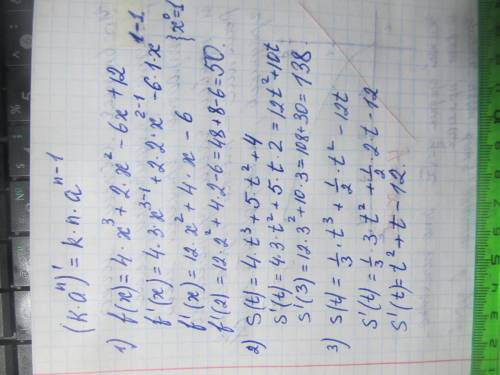 (k·aⁿ)' = k·n·aⁿ⁻¹
1) f(x) = 4·x³ + 2·x² - 6x + 12
1-1
f'(x) = 4·3·x³⁻¹ + 2·2·x²⁻¹ - 6·1·x
{x⁰=1
f'(x) = 12·x² + 4·x - 6
f'(2) = 12·2² + 4·2 - 6 = 48 + 8 - 6 = 50.
2) S(t) = 4·t³ + 5·t² + 4
S'(t) = 4·3·t² + 5·t·2 = 12t² + 10t
S'(3) = 12·3² + 10·3 = 108 + 30 = 138
3) S(t) = 1/3·t³ + 1/2·t² - 12t
S'(t) = 1/3·3·t² + 1/2·2t - 12
S'(t) = t² + t - 12